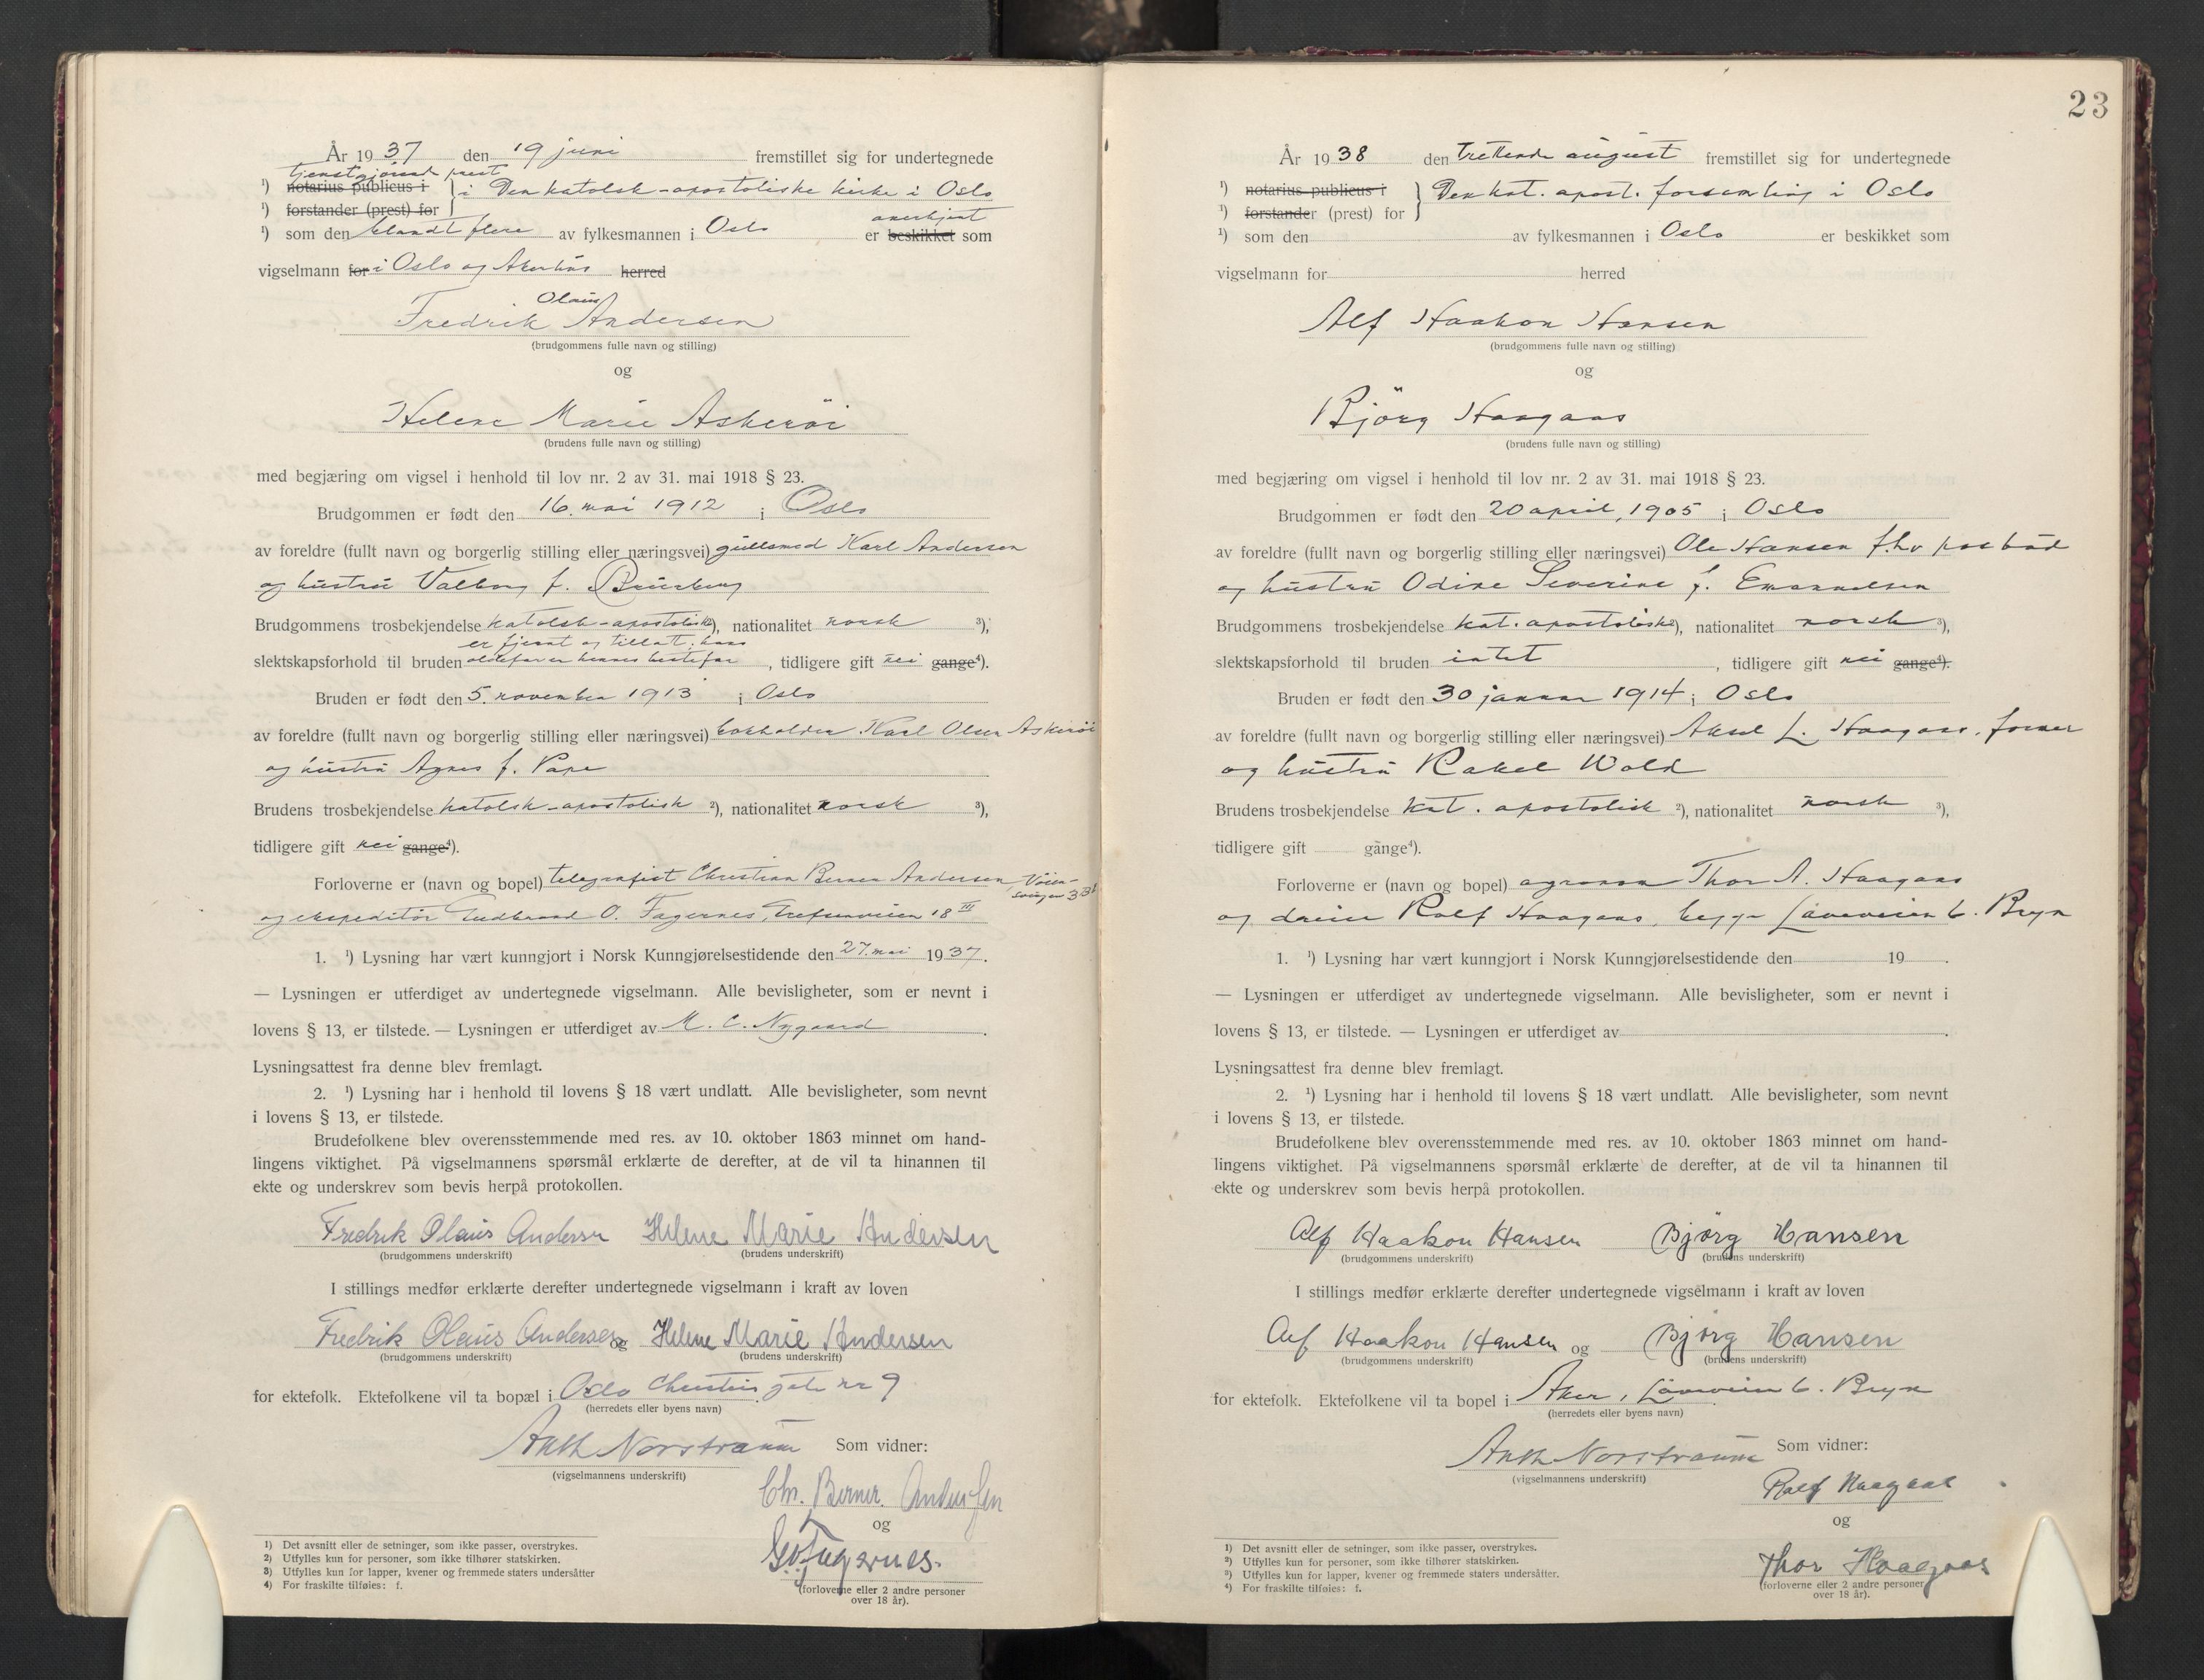 År 1937 den 19 juni fremstillet sig for undertegnede
tjenstgjørende prest
¹) notarius publicus i } i Den katolsk-apostoliske kirke i Oslo
¹) forstander (prest) for
anerkjent
¹) som den blandt flere av fylkesmannen i Oslo er beskikket som
vigselmann for i Oslo og Akershus herred
Olaus
Fredrik Andersen
(brudgommens fulle navn og stilling)
og
Helene Marie Askeröi
(brudens fulle navn og stilling)
med begjæring om vigsel i henhold til lov nr. 2 av 31. mai 1918 § 23.
Brudgommen er født den 16. mai 1912 i Oslo
av foreldre (fullt navn og borgerlig stilling eller næringsvei) gullsmed Karl Andersen
og hustru Valborg f.
Brudgommens trosbekjendelse katolsk-apostolisk ²), nationalitet norsk ³),
er fjernt og tillatt, hans
slektskapsforhold til bruden oldefar er hennes bestefar, tidligere gift nei gange⁴).
Bruden er født den 5. november 1913 i Oslo
av foreldre (fullt navn og borgerlig stilling eller næringsvei) bokholder Karl Olsen Askeröi
og hustru Agnes f. Pape
Brudens trosbekjendelse katolsk-apostolisk ²), nationalitet norsk ³),
tidligere gift nei gange⁴).
Forloverne er (navn og bopel) telegrafist Christian Berner Andersen, Vöien-
svingen 33¹
og ekspeditör Gudbrand O. Fagernes, Grefsenveien 18 III
1. ¹) Lysning har vært kunngjort i Norsk Kunngjørelsestidende den 27. mai 1937.
— Lysningen er utferdiget av undertegnede vigselmann. Alle bevisligheter, som er nevnt i
lovens § 13, er tilstede. — Lysningen er utferdiget av M. C. Nygaard.
Lysningsattest fra denne blev fremlagt.
2. ¹) Lysning har i henhold til lovens § 18 vært undlatt. Alle bevisligheter, som nevnt
i lovens § 13, er tilstede.
Brudefolkene blev overensstemmende med res. av 10. oktober 1863 minnet om hand-
lingens viktighet. På vigselmannens spørsmål erklærte de derefter, at de vil ta hinannen til
ekte og underskrev som bevis herpå protokollen.
Fredrik Olaus Andersen Helene Marie Andersen
(brudgommens underskrift) (brudens underskrift)
I stillings medfør erklærte derefter undertegnede vigselmann i kraft av loven
Fredrik Olaus Andersen og Helene Marie Andersen
(brudgommens underskrift) (brudens underskrift)
for ektefolk. Ektefolkene vil ta bopæl i Oslo Christies gate nr 9
(herredets eller byens navn)
Anth Norstraum Som vidner:
(vigselmannens underskrift)
Chr. Berner Andersen
og
G. O. Fagernes.
(forloverne eller 2 andre personer
over 18 år).
1) Det avsnitt eller de setninger, som ikke passer, overstrykes.
2) Utfylles kun for personer, som ikke tilhører statskirken.
3) Utfylles kun for lapper, kvener og fremmede staters undersåtter
4) For fraskilte tilføies: f.
23
År 1938 den trettende august fremstillet sig for undertegnede
¹) notarius publicus i } Den kat. apost. forsamling i Oslo
¹) forstander (prest) for
¹) som den av fylkesmannen i Oslo er beskikket som
vigselmann for herred
Alf Haakon Hansen
(brudgommens fulle navn og stilling)
og
Björg Haagaas
(brudens fulle navn og stilling)
med begjæring om vigsel i henhold til lov nr. 2 av 31. mai 1918 § 23.
Brudgommen er født den 20 april, 1905 i Oslo
av foreldre (fullt navn og borgerlig stilling eller næringsvei) Ole Hansen f.hv. postbud
og hustru Odine Severine f. Emanuelsen
Brudgommens trosbekjendelse kat. apostolisk ²), nationalitet norsk ³),
slektskapsforhold til bruden intet, tidligere gift nei gange⁴).
Bruden er født den 30 januar 1914 i Oslo
av foreldre (fullt navn og borgerlig stilling eller næringsvei) Aksel L. Haagaas, former
og hustru Rakel Wold
Brudens trosbekjendelse kat. apostolisk ²), nationalitet norsk ³),
tidligere gift gange⁴).
Forloverne er (navn og bopel) agronom Thor A. Haagaas
og dreier Rolf Haagaas, begge Löveveien 6. Bryn
1. ¹) Lysning har vært kunngjort i Norsk Kunngjørelsestidende den 19 .
— Lysningen er utferdiget av undertegnede vigselmann. Alle bevisligheter, som er nevnt i
lovens § 13, er tilstede. — Lysningen er utferdiget av .
Lysningsattest fra denne blev fremlagt.
2. ¹) Lysning har i henhold til lovens § 18 vært undlatt. Alle bevisligheter, som nevnt
i lovens § 13, er tilstede.
Brudefolkene blev overensstemmende med res. av 10. oktober 1863 minnet om hand-
lingens viktighet. På vigselmannens spørsmål erklærte de derefter, at de vil ta hinannen til
ekte og underskrev som bevis herpå protokollen.
Alf Haakon Hansen Björg Hansen
(brudgommens underskrift) (brudens underskrift)
I stillings medfør erklærte derefter undertegnede vigselmann i kraft av loven
Alf Haakon Hansen og Björg Hansen
(brudgommens underskrift) (brudens underskrift)
for ektefolk. Ektefolkene vil ta bopel i Aker, Löveveien 6. Bryn
(herredets eller byens navn)
Anth Norstraum Som vidner:
(vigselmannens underskrift)
Rolf Haagaas
og
Thor Haagaas
(forloverne eller 2 andre personer
over 18 år).
1) Det avsnitt eller de setninger, som ikke passer, overstrykes.
2) Utfylles kun for personer, som ikke tilhører statskirken.
3) Utfylles kun for lapper, kvener og fremmede staters undersåtter.
4) For fraskilte tilføies: f.